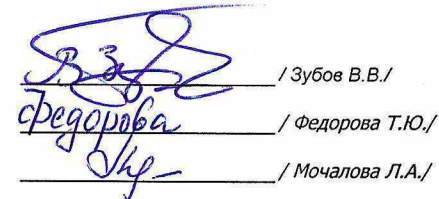 В Зуб / Зубов В.В./
Федорова / Федорова Т.Ю./
/ Мочалова Л.А./